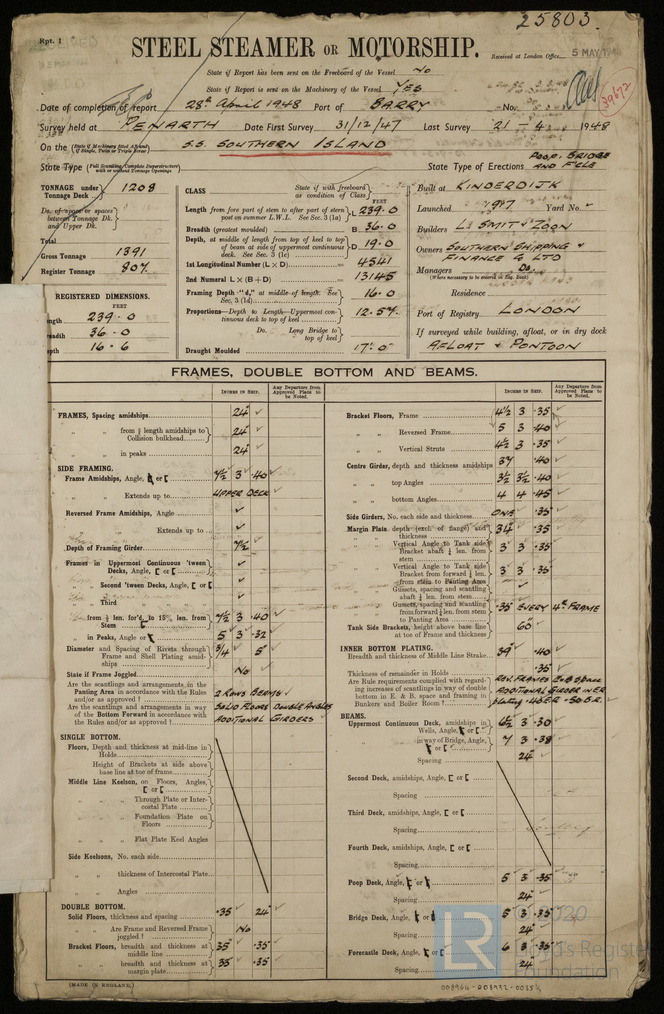 25803.
Rpt. 1
STEEL STEAMER OR MOTORSHIP.
Received at London Office 5 MAY
State if Report has been sent on the Freeboard of the Vessel No
State if Report is sent on the Machinery of the Vessel YES
39672
Date of completion of report 28th April 1948 Port of BARRY No.
Survey held at PENARTH Date First Survey 31/12/47 Last Survey 21 - 4 1948
On the S.S. SOUTHERN ISLAND
State Type (Full Scantling, Complete Superstructure with or without Tonnage Openings
State Type of Erections POOP, BRIDGE AND F'CLE
TONNAGE under Tonnage Deck 1208
Do. of space or spaces between Tonnage Dk. and Upper Dk.
Total
Gross Tonnage 1391
Register Tonnage 807
REGISTERED DIMENSIONS.
FEET
ength 239.0
readth 36.0
epth 16.6
CLASS State if with freeboard as condition of Class
FEET
Length from fore part of stem to after part of stern post on summer L.W.L. See Sec. 3 (1a) L 239.0
Breadth (greatest moulded) B 36.0
Depth, at middle of length from top of keel to top of beam at side of uppermost continuous deck. See Sec. 3 (1c) D 19.0
1st Longitudinal Number (L × D) 4541
2nd Numeral L × (B + D) 13145
Framing Depth "d," at middle of length. See Sec. 3 (1d) 16.0
Proportions—Depth to Length—Uppermost continuous deck to top of keel 12.57
Do. Long Bridge to top of keel
Draught Moulded 17.0
Built at KINDERDIJK
Launched 1917 Yard No.
Builders L. SMIT & ZOON
Owners SOUTHERN SHIPPING & FINANCE Co LTD
Managers Do.
(Where necessary to be entered in Reg. Book)
Residence
Port of Registry LONDON
If surveyed while building, afloat, or in dry dock
AFLOAT & PONTOON
FRAMES, DOUBLE BOTTOM AND BEAMS.
INCHES IN SHIP.
Any Departure from Approved Plans to be Noted.
FRAMES, Spacing amidships 24
" " from ⅗ length amidships to Collision bulkhead 24
" " in peaks 24
SIDE FRAMING.
Frame Amidships, Angle, or [ 7½ 3 .40
" " Extends up to UPPER DECK
Reversed Frame Amidships, Angle
" " Extends up to
Depth of Framing Girder 7½
Frames in Uppermost Continuous 'tween Decks, Angle, [ or [
" Second 'tween Decks, Angle, [ or [
" Third
" from ⅗ len. for'd. to 15% len. from Stem 7½ 3 .40
" in Peaks, Angle or 5 3 .32
Diameter and Spacing of Rivets through Frame and Shell Plating amidships 3/4 5
State if Frame Joggled No
Are the scantlings and arrangements in the Panting Area in accordance with the Rules and/or as approved? 2 ROWS BEAMS
Are the scantlings and arrangements in way of the Bottom Forward in accordance with the Rules and/or as approved? SOLID FLOORS DOUBLE ANGLES ADDITIONAL GIRDERS
SINGLE BOTTOM.
Floors, Depth and thickness at mid-line in Holds
Height of Brackets at side above base line at toe of frame
Middle Line Keelson, on Floors, Angles, [ or [
" " Through Plate or Intercostal Plate
" " Foundation Plate on Floors
" " Flat Plate Keel Angles
Side Keelsons, No. each side
" " thickness of Intercostal Plate
" " Angles
DOUBLE BOTTOM.
Solid Floors, thickness and spacing .35 24
" " Are Frame and Reversed Frame joggled? No
Bracket Floors, breadth and thickness at middle line 35 .35
" " breadth and thickness at margin plate 35 .35
INCHES IN SHIP.
Any Departure from Approved Plans to be Noted.
Bracket Floors, Frame 4½ 3 .35
" " Reversed Frame 5 3 .40
" " Vertical Struts 4½ 3 .35
Centre Girder, depth and thickness amidships 37 .40
" " top Angles 3½ 3½ .40
" " bottom Angles 4 4 .45
Side Girders, No. each side and thickness ONE .35
Margin Plate, depth (excl. of flange) and thickness 34 .35
" " Vertical Angle to Tank side Bracket abaft ¼ len. from stem 3 3 .35
" " Vertical Angle to Tank side Bracket from forward ¼ len. from stem to Panting Area 3 3 .35
" " Gussets, spacing and scantling abaft ¼ len. from stem
" " Gussets, spacing and scantling from forward ¼ len. from stem to Panting Area .35 EVERY 4th FRAME
Tank Side Brackets, height above base line at toe of Frame and thickness 60
INNER BOTTOM PLATING.
Breadth and thickness of Middle Line Strake 39 .40
Thickness of remainder in Holds .35
Are Rule requirements complied with regarding increases of scantlings in way of double bottom in E. & B. space and framing in Bunkers and Boiler Room? REV. FRAMES E & B SPACE ADDITIONAL GIRDER IN E.R. plating .40 E.R .50 B.R.
BEAMS.
Uppermost Continuous Deck, amidships in Wells, Angle, or [ 6½ 3 .30
" " in way of Bridge, Angle, or [ 7 3 .38
Spacing 24
Second Deck, amidships, Angle, [ or [
Spacing
Third Deck, amidships, Angle, [ or [
Spacing
Fourth Deck, amidships, Angle, [ or [
Spacing
Poop Deck, Angle, or 5 3 .35
Spacing 24
Bridge Deck, Angle, or [ 5 3 .35
Spacing 24
Forecastle Deck, Angle, or [ 6 3 .35
Spacing 24
(MADE IN ENGLAND.)
LR
© 2020
Lloyd's Register
Foundation
008964-008972-0035¼